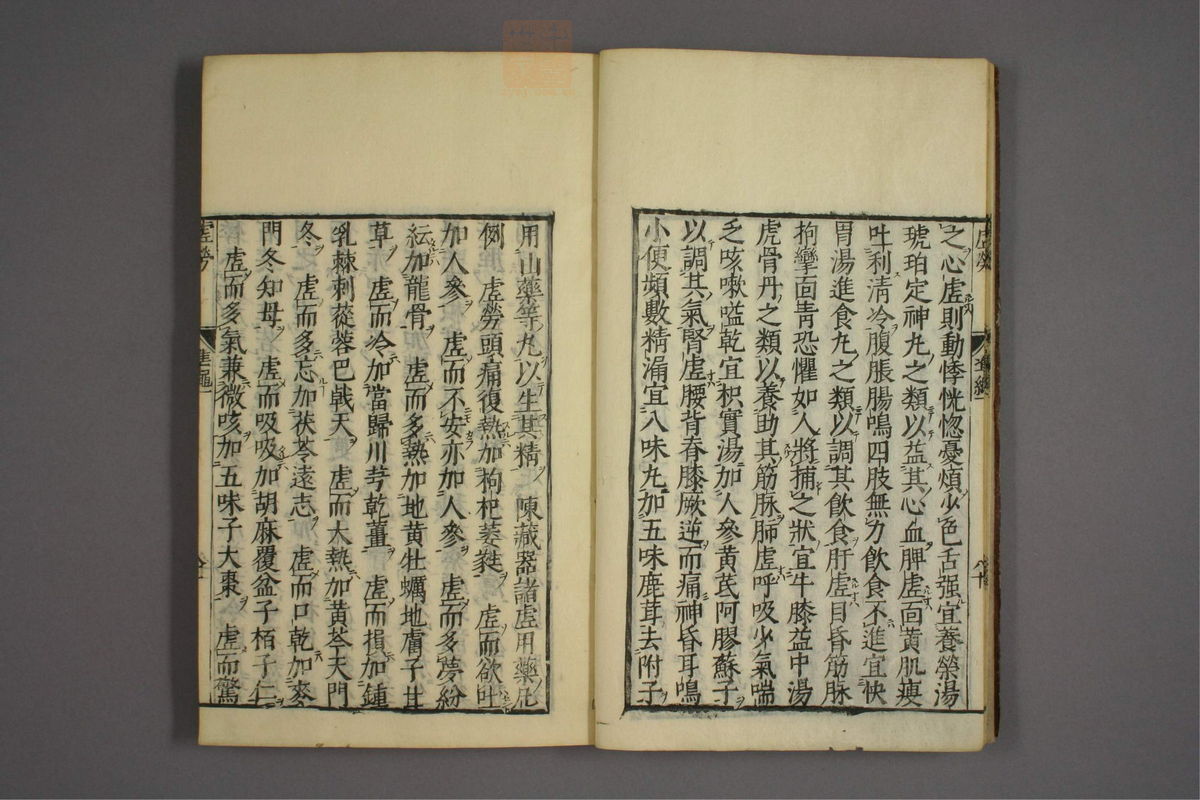 之心虛則動悸恍惚憂煩少色舌强宜養榮湯
琥珀定神丸之類以益其心血脾虛面黃肌瘦
吐利清冷腹脹腸鳴四肢無力飲食不進宜快
胃湯進食丸之類以調其飲食肝虛目昏筋脉
拘攣面青恐懼如人將捕之狀宜牛膝益中湯
虎骨丹之類以養助其筋脉肺虛呼吸少氣喘
乏咳嗽嗌乾宜枳實湯加人參黃芪阿膠蘇子
以調其氣腎虛腰背脊膝厥逆而痛神昏耳鳴
小便頻數精漏宜八味丸加五味鹿茸去附子
用山藥等丸以生其精 陳藏器諸虛用藥凡
例 虛勞頭痛復熱加枸杞萎蕤 虛而欲吐
加人參 虛而不安亦加人參 虛而多夢紛
紜加龍骨 虛而多熱加地黃牡蠣地膚子甘
草 虛而冷加當歸川芎乾薑 虛而損加鍾
乳棘刺蓯蓉巴戟天 虛而大熱加黃芩天門
冬 虛而多忘加茯苓遠志 虛而口乾加麥
門冬知母 虛而吸吸加胡麻覆盆子栢子仁
虛而多氣兼微咳加五味子大棗 虛而驚
虛勞